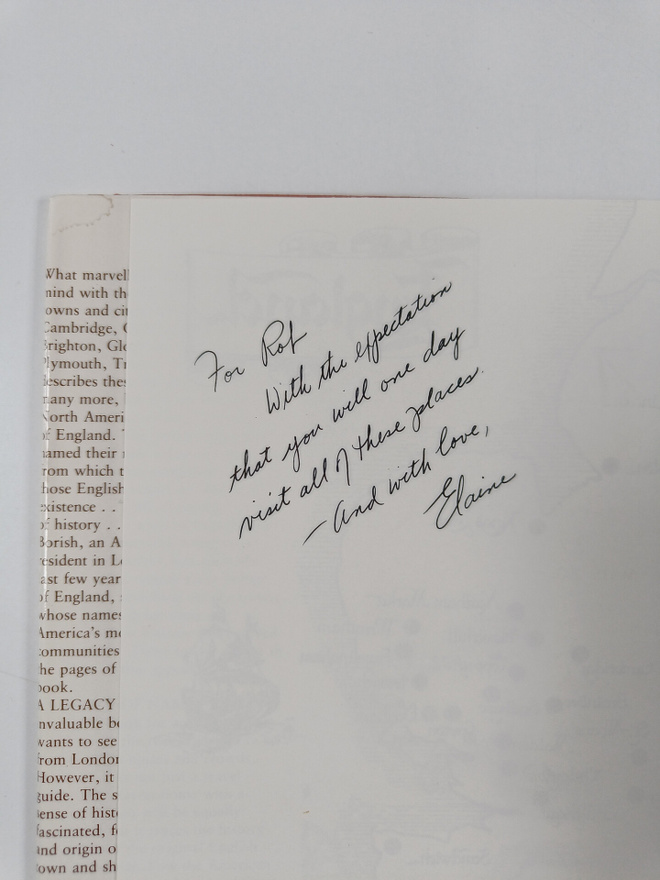 What marvell
mind with th
owns and cit
Cambridge, G
Brighton, Glo
Plymouth, Tr
describes thes
many more,
North Ameri
of England. T
named their
from which t
hose English
existence . .
of history . .
Borish, an A
resident in Lo
ast few year
of England,
whose names
America's mo
communities
the pages of
book.
A LEGACY
invaluable bo
wants to see
from London
However, it
guide. The s
sense of hist
fascinated, f
and origin o
own and sh
For Rob
With the expectation
that you will one day
visit all of these places.
— And with love,
Elaine